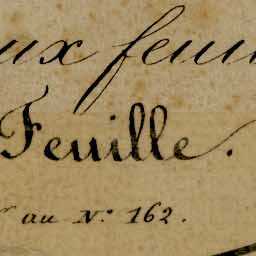 ux feui
Feuille.
au N.° 162.